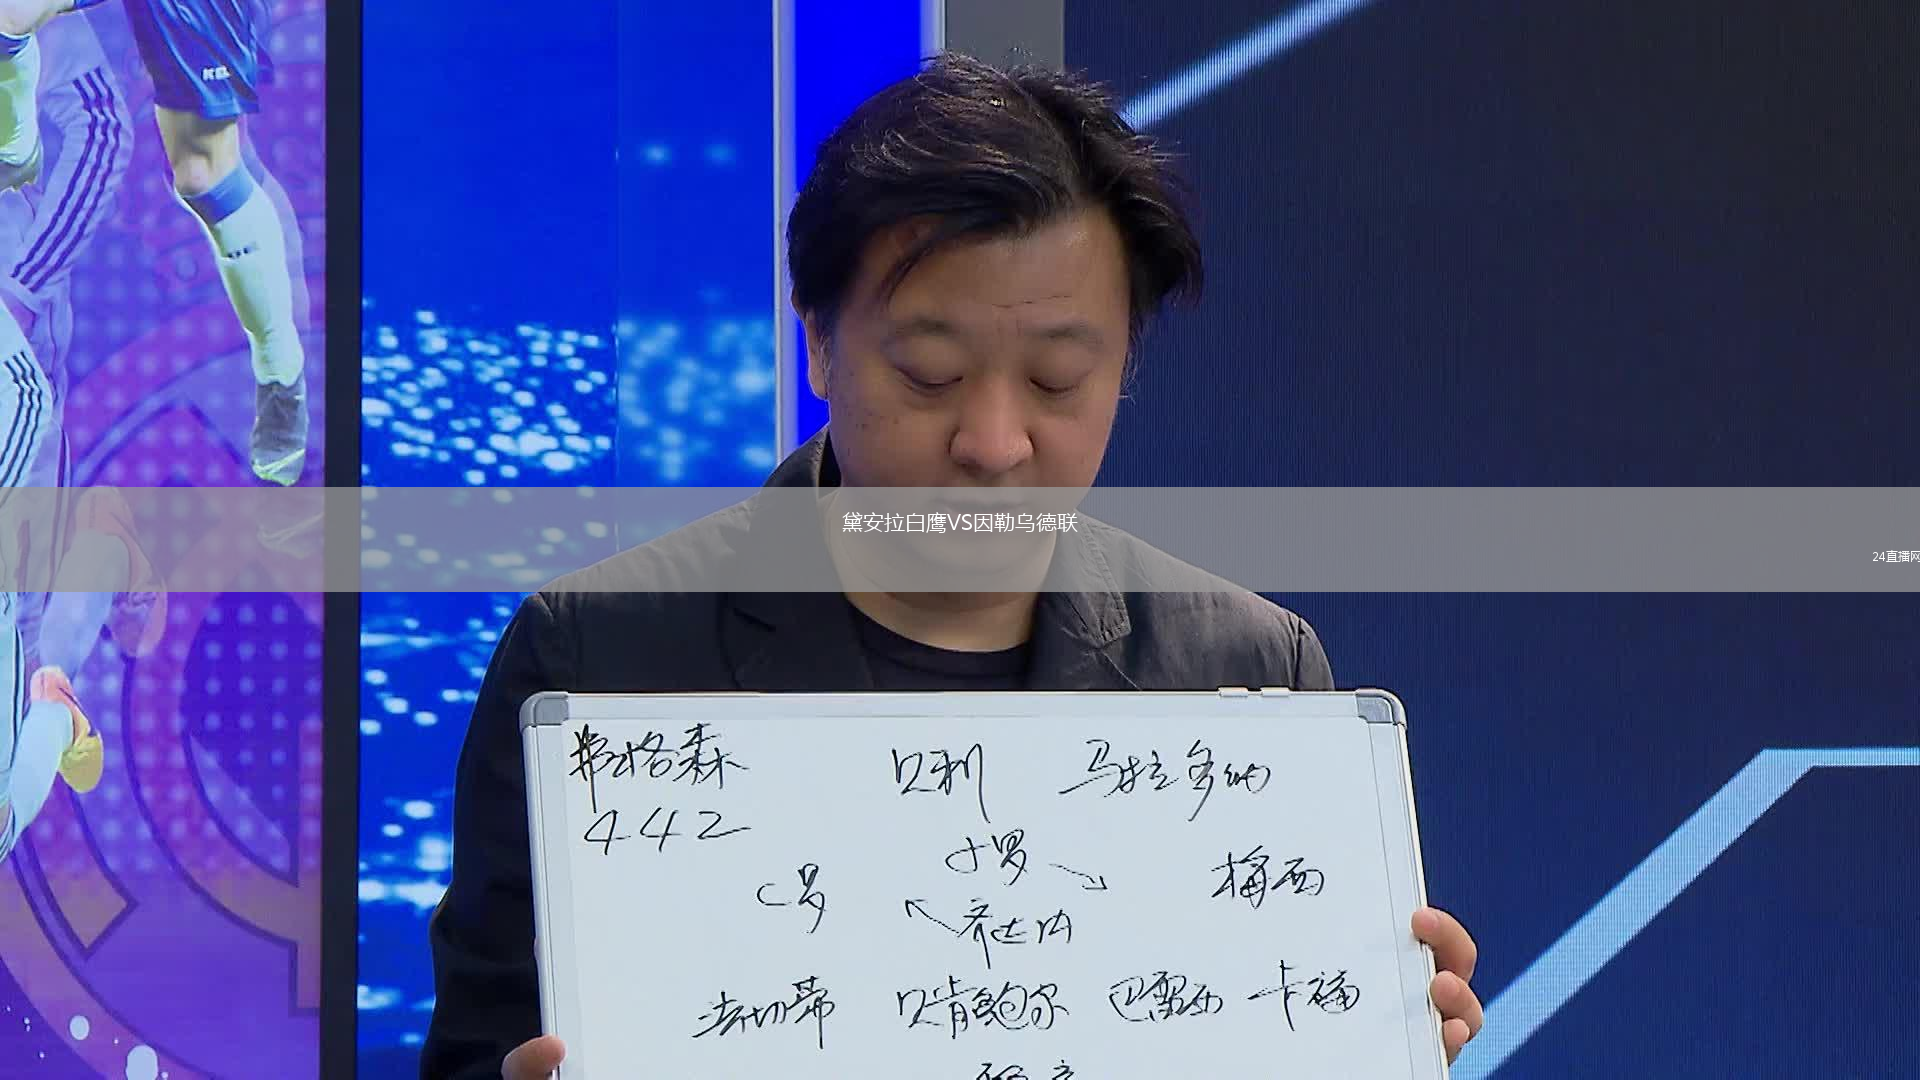 KEL
黛安拉白鹰VS因勒乌德联
24直播网
弗格森 贝利 马拉多纳
442
小罗
C罗 梅西
齐达内
法切蒂 贝肯鲍尔 巴雷西 卡福